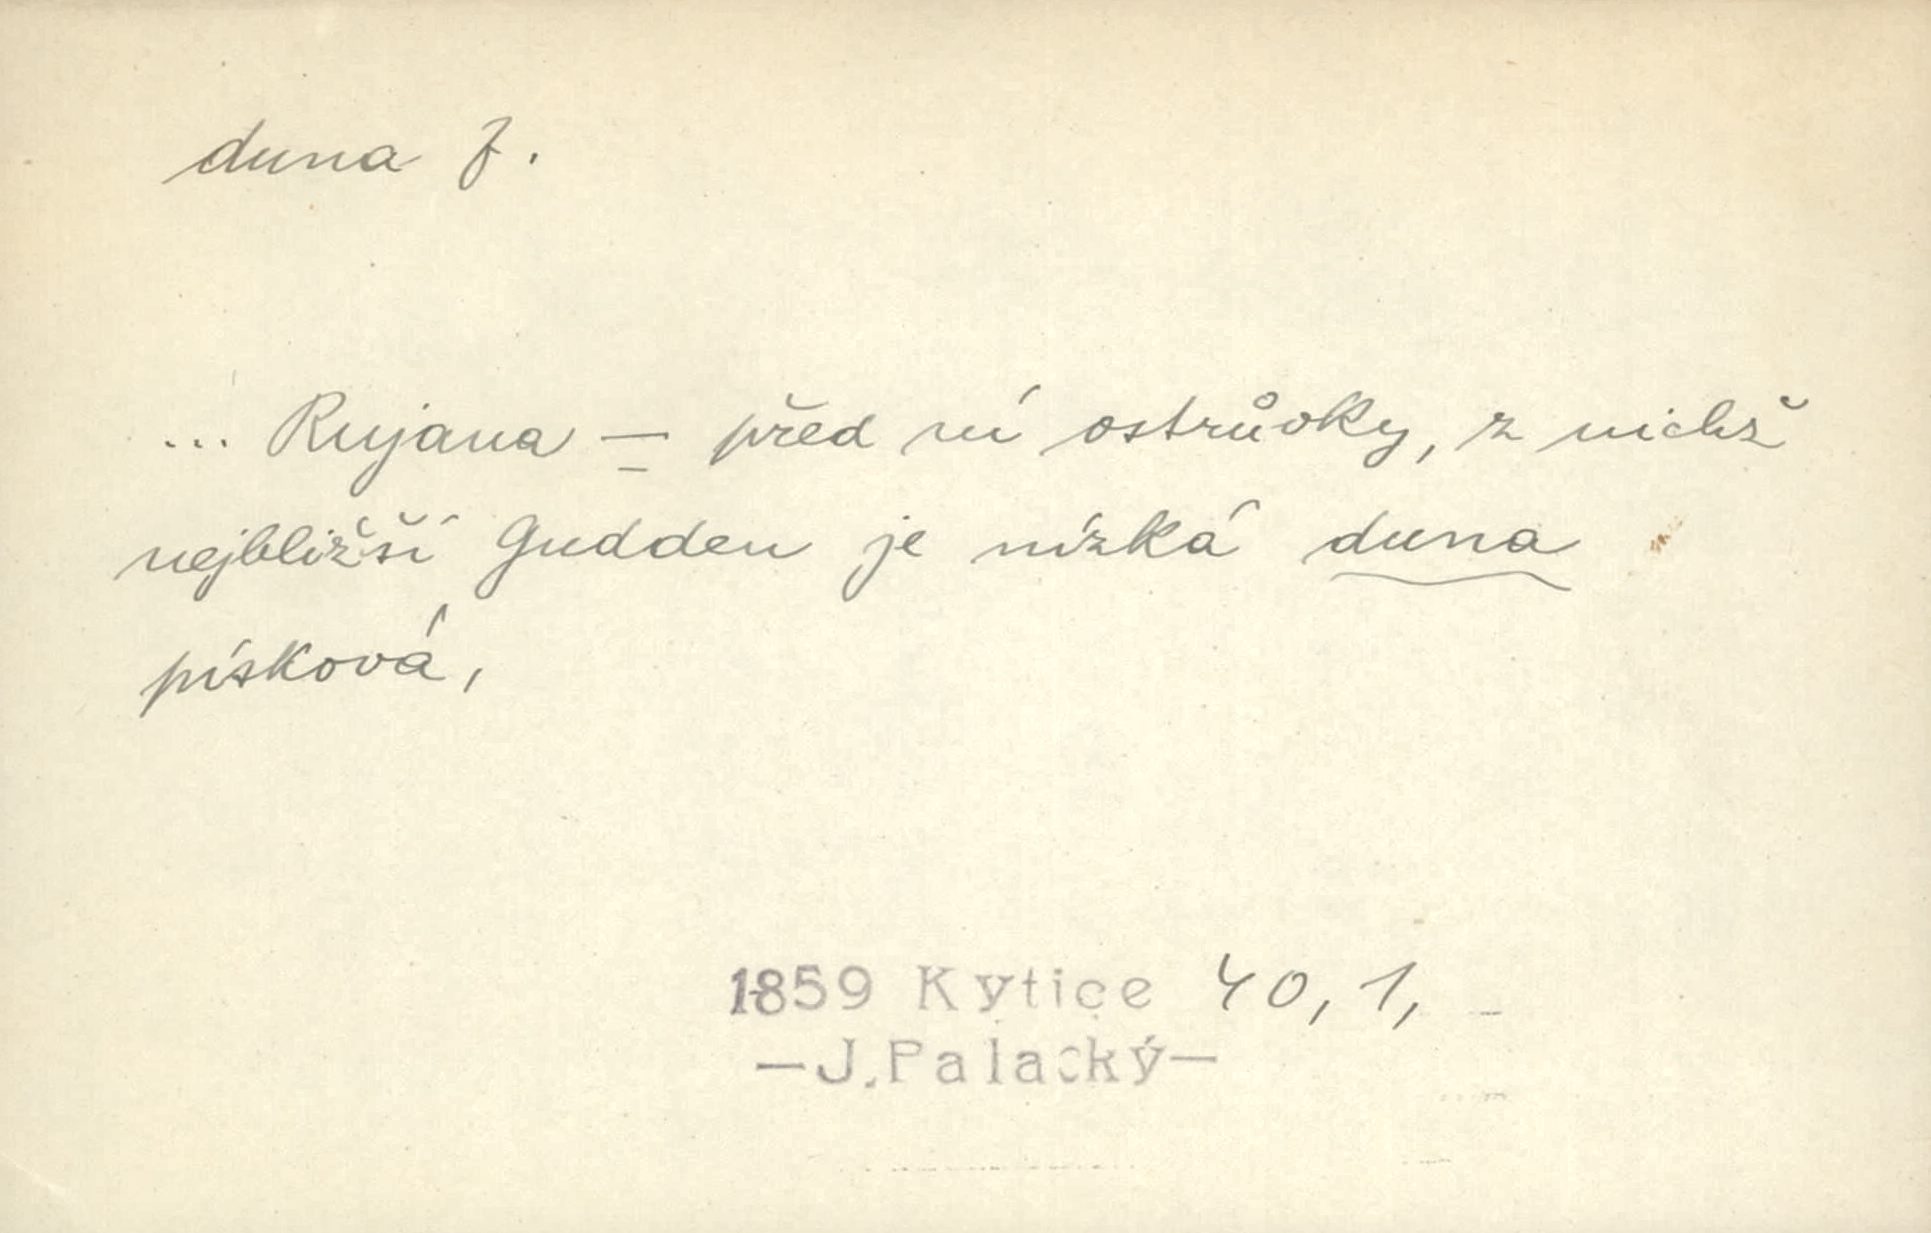 duna f.
... Rujana — před ní ostrůvky, z nichž
nejbližší Gudden je nízká duna
písková,
1859 Kytice 40, 1,
—J.Palacký—